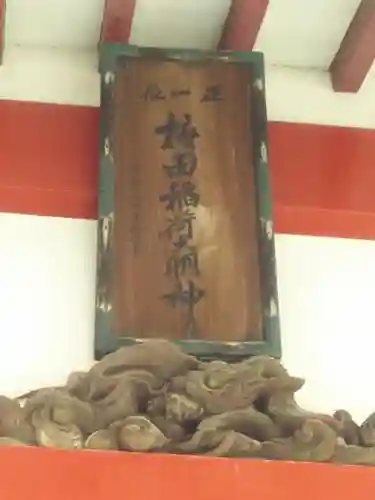 正一位
梅田稲荷大明神